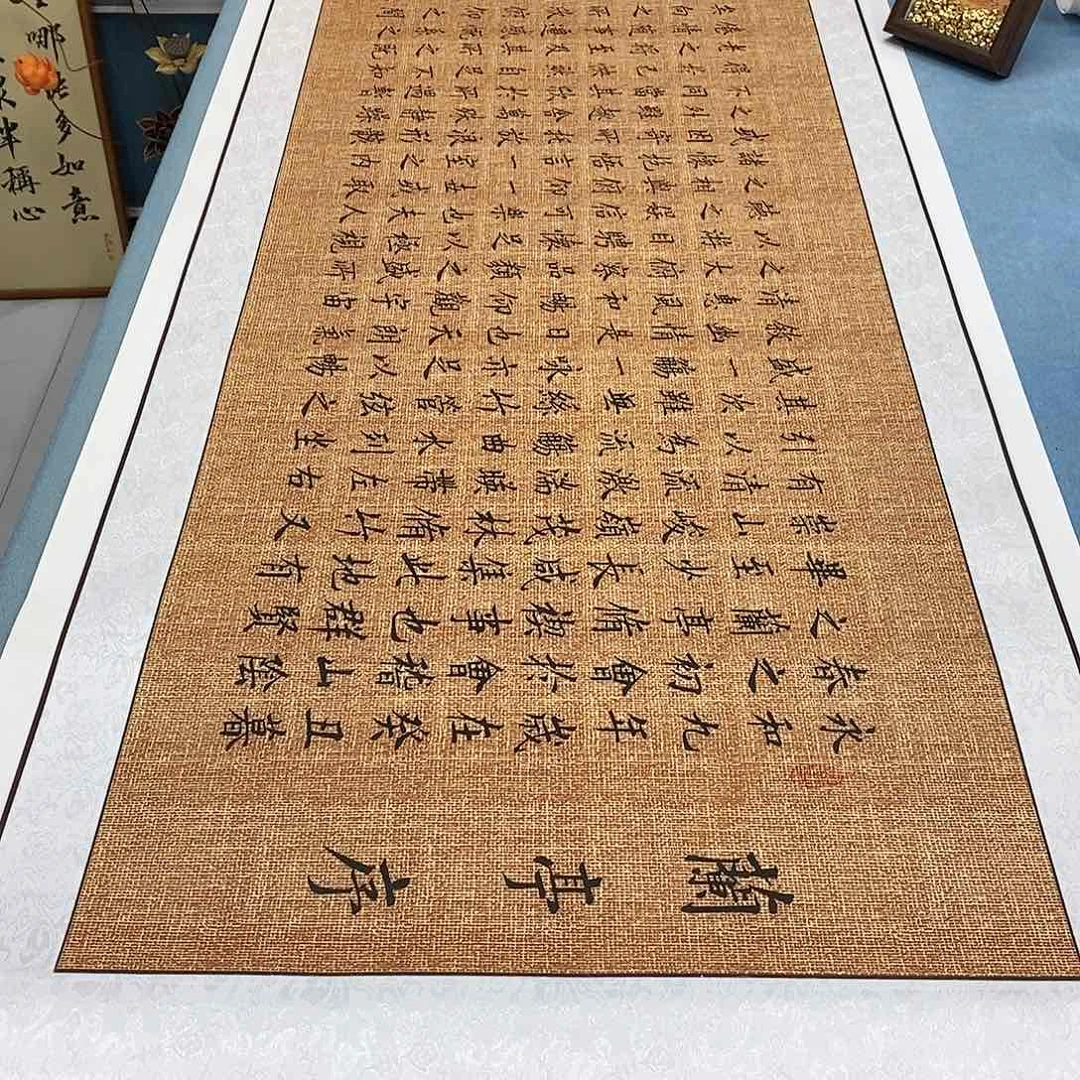 蘭亭序
永和九年歲在癸丑暮
春之初會於會稽山陰
之蘭亭脩禊事也群賢
畢至少長咸集此地有
崇山峻嶺茂林脩竹又
有清流激湍暎帶左右
引以為流觴曲水列坐
其次雖無絲竹管絃之
盛一觴一詠亦足以暢
敘幽情是日也天朗氣
清惠風和暢仰觀宇宙
之大俯察品類之盛所
以遊目騁懷足以極視
聽之娛信可樂也夫人
之相與俯仰一世或取
諸懷抱悟言一室之內
或因寄所託放浪形骸
之外雖趣舍萬殊靜躁
不同當其欣於所遇暫
得於己快然自足不知
老之將至及其所之既
倦情隨事遷感慨係之
矣向之所欣俛仰之間
哪能多如意
求半稱心